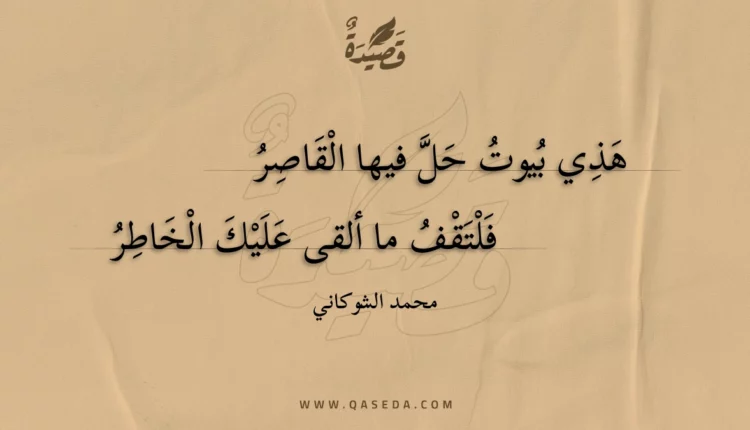 قَصِيْدَةٌ
هَذِي بُيوتُ حَلَّ فيها الْقَاصِرُ
فَلْتَقْفُ ما ألقى عَلَيْكَ الْخَاطِرُ
محمد الشوكاني
WWW.QASEDA.COM